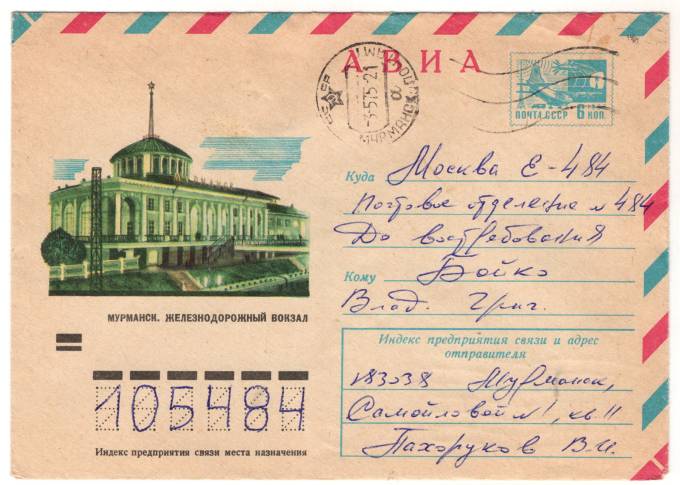 АВИА
ПОЧТА СССР 6 КОП.
СССР МУРМАНСК
-3.5.75.21
Куда Москва Е-484
Почтовое отделение № 484
До востребования
Кому Бойко
Влад. Григ.
МУРМАНСК. ЖЕЛЕЗНОДОРОЖНЫЙ ВОКЗАЛ
Индекс предприятия связи и адрес
отправителя
183038 Мурманск,
Самойловой 1, кв 11
Пахоруков В.И.
105484
Индекс предприятия связи места назначения